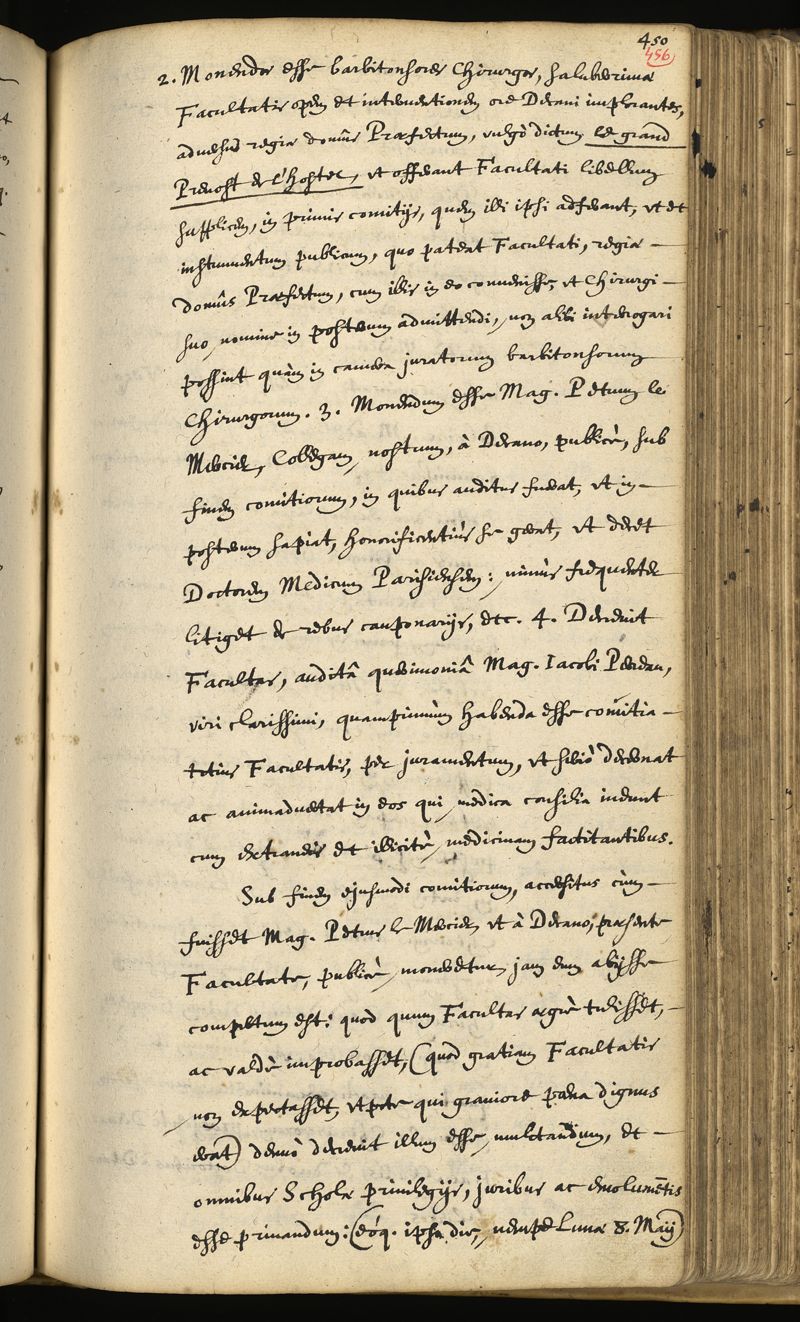 450
456
2. Monendos esse barbitonsores Chirurgos, saluberrimæ
Facultatis opem et interventionem ore Decani implorantes,
adversus regiæ domûs Præfectum, vulgò dictum le grand
Prevost de l'hostel, ut offerant Facultati libellum
supplicem, in primis comitijs, quem illi ipsi adferant, ut et
instrumentum publicum, quo pateat Facultati, regiæ —
domûs Præfectum, cum illis in eo convenisse, ut Chirurgi —
suo nomine in posterum admittendi, non alibi interrogari
possint quàm in camera juratorum barbitonsorum
Chirurgorum. 3. Monendum esse Mag. Petrum le
Mercier, Collegam nostrum, à Decano, publicè, sub
finem comitiorum, in quibus auditus fuerat, ut in —
posterum sapiat, honorificentiùs se gerat, ut decet
Doctorem Medicum Parisiensem: minùs frequenter
litiget de rebus cauponarijs, etc. 4. Decrevit
Facultas, auditâ querimoniâ Mag. Iacobi Perreau,
viri clarissimi, quamprimùm habenda esse comitia —
totius Facultatis, per juramentum, ut seriò decernat
ac animadvertat in eos qui medica consilia ineunt
cum extraneis et illicitè medicinam factitantibus.
Sub finem ejusmodi comitiorum, accersitus cùm —
fuisset Mag. Petrus le Mercier, ut à Decano, præsente
Facultate, publicè moneretur, jam eum abijsse
compertum est: quod quum Facultas ægrè tulisset, —
ac valdè improbasset, (quòd gratiam Facultatis
non expectasset, utpote qui graviore pœna dignus
erat) denuò decrevit illum esse mulctandum, et —
omnibus Scholæ privilegijs, juribus ac emolumētis
esse privandum: (eóq. ipso die, nempe Lunæ 8. Maij)